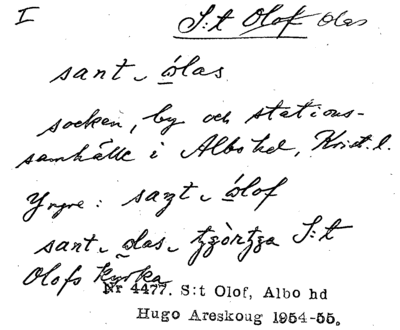 I S:t Olof Olas
sant ólas
socken, by och stations-
samhälle i Albo hd, Krist. l.
Yngre: sant ólof
sant olas S:t
Olofs kyrka
Nr 4477. S:t Olof, Albo hd
Hugo Areskoug 1954-55.